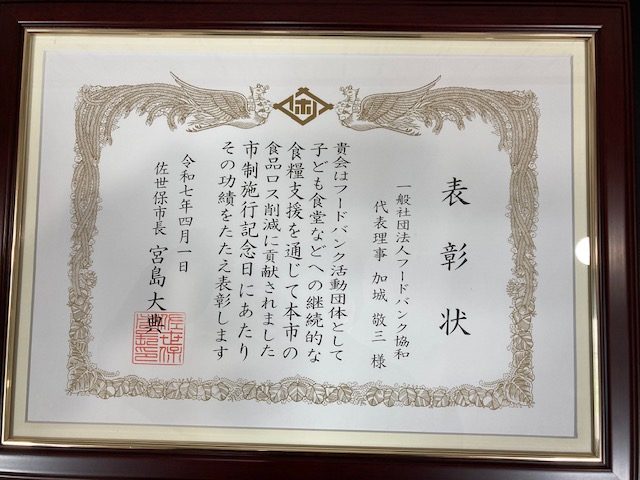 表彰状
一般社団法人フードバンク協和
代表理事 加城 敬三 様
貴会はフードバンク活動団体として
子ども食堂などへの継続的な
食糧支援を通じて本市の
食品ロス削減に貢献されました
市制施行記念日にあたり
その功績をたたえ表彰します
令和七年四月一日
佐世保市長 宮島大典